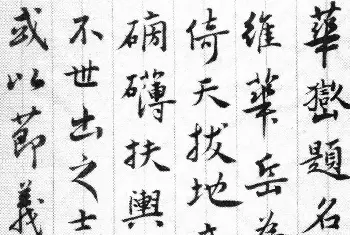 華嶽題名
維華岳為
倚天拔地
磅礴扶輿
不世出之士
或以節義